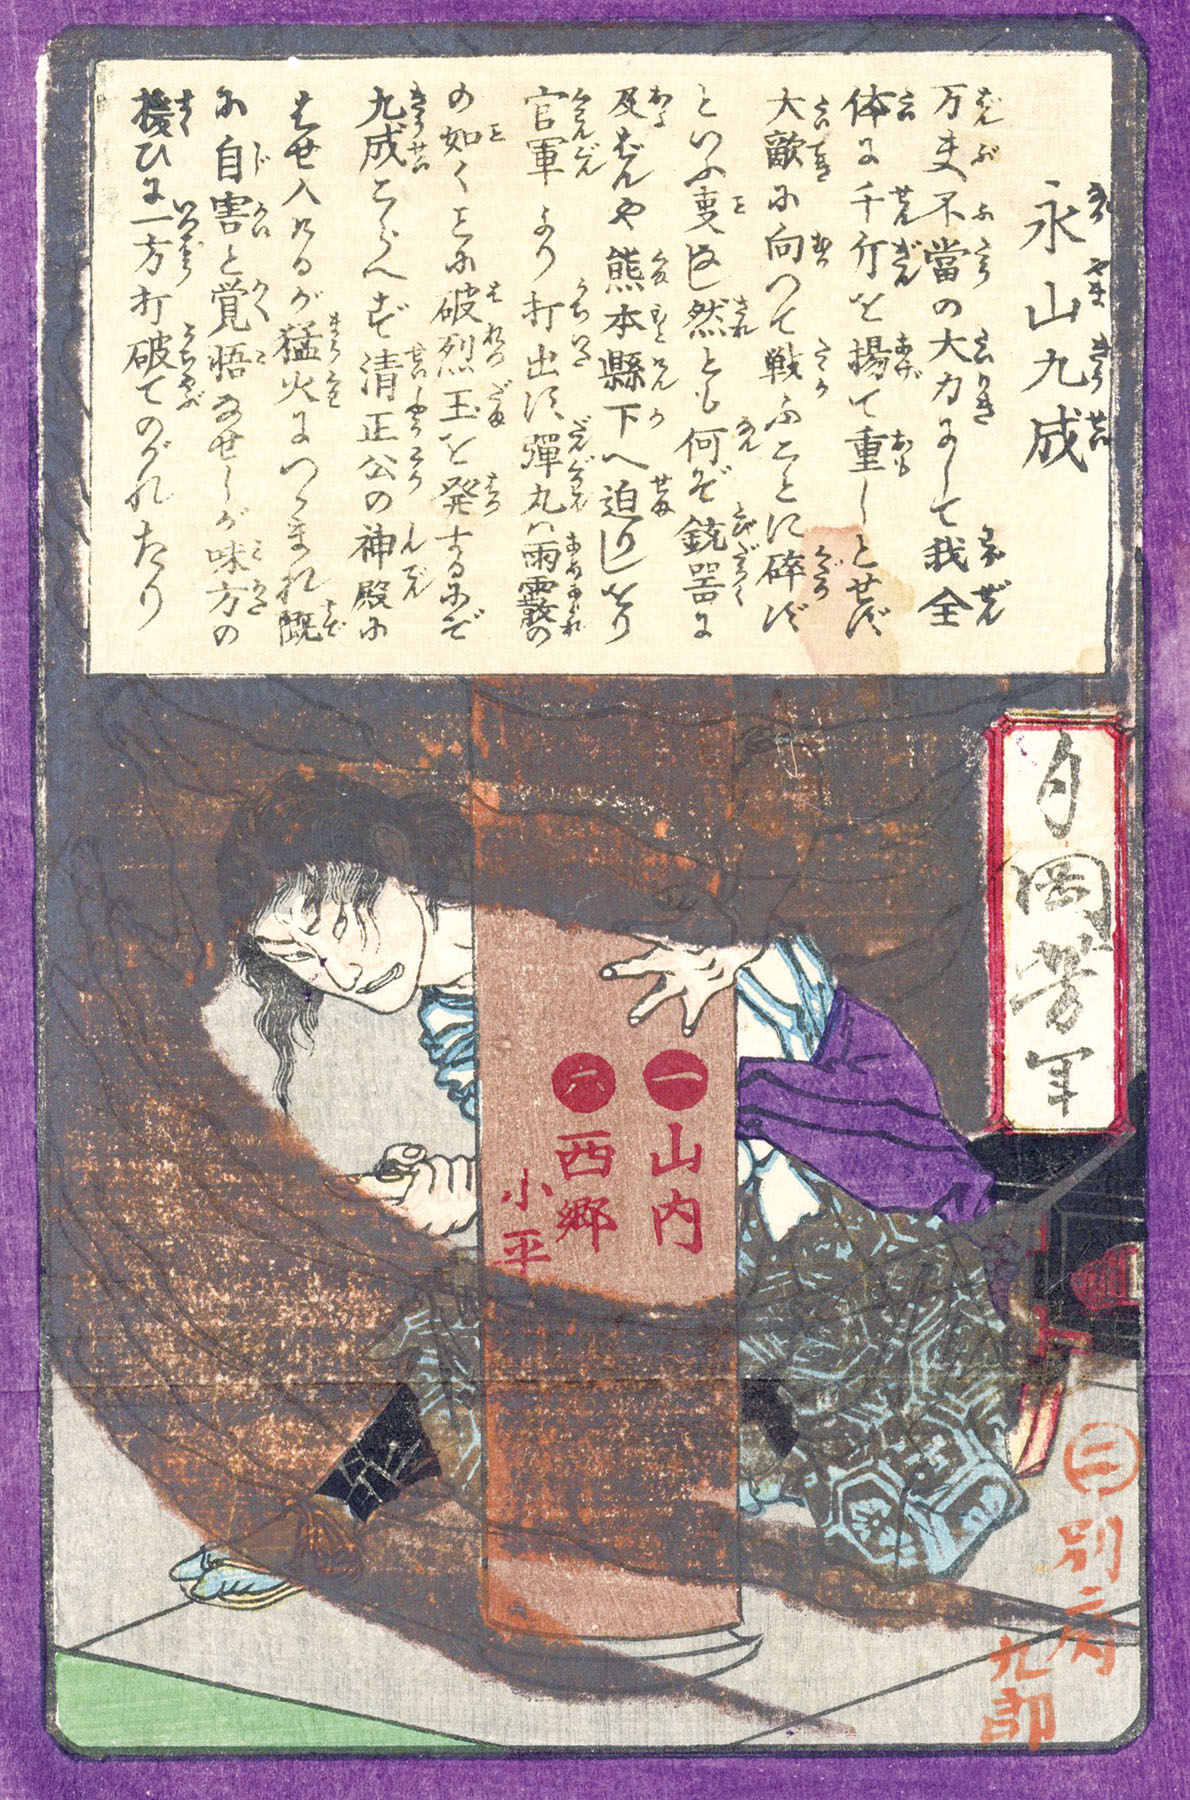 永山九成
万夫不當の大力にして我全
体に千斤を揚て重しとせず
大敵に向つて戦ふことに砕ず
といふ事なし然とも何ぞ銃器に
及ばんや熊本縣下へ迫りしをり
官軍より打出す彈丸は雨霰の
の如くことに破烈玉を発するにぞ
九成こらへず清正公の神殿に
はせ入けるが猛火につゝまれ既
に自害と覚悟なせしが味方の
機ひに一方打破てのがれたり
月岡芳年
一 山内
六 西郷
小平
三 別府
九郎